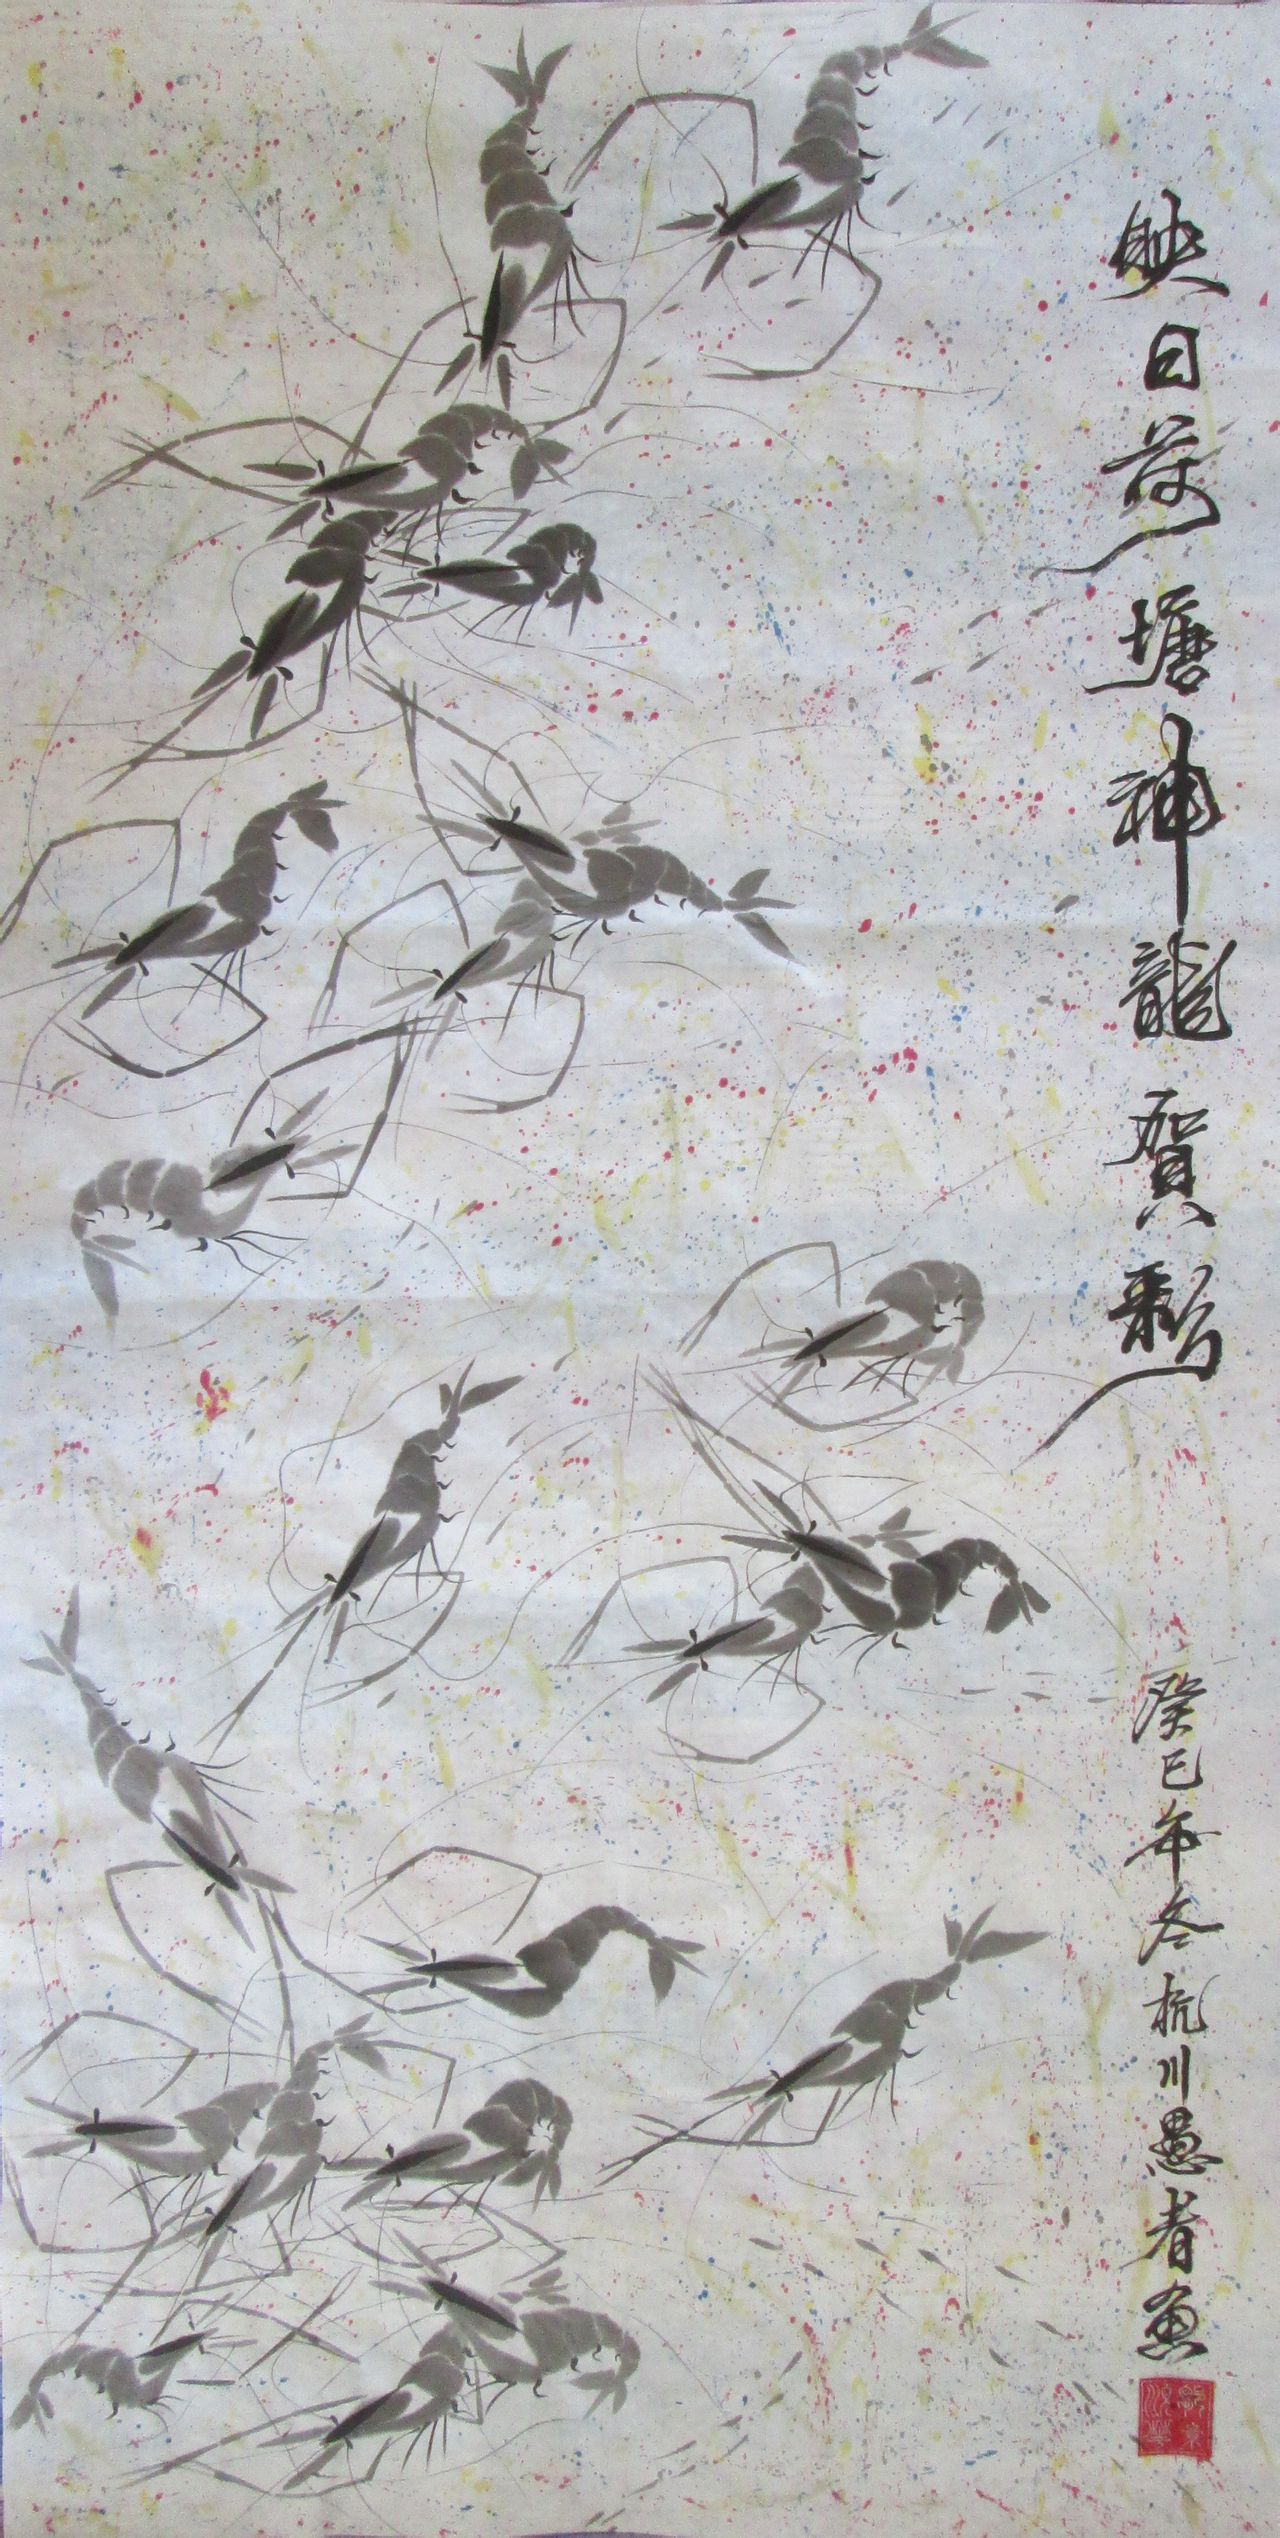 映日荷塘神龍賀彩
癸巳年冬杭川愚者画